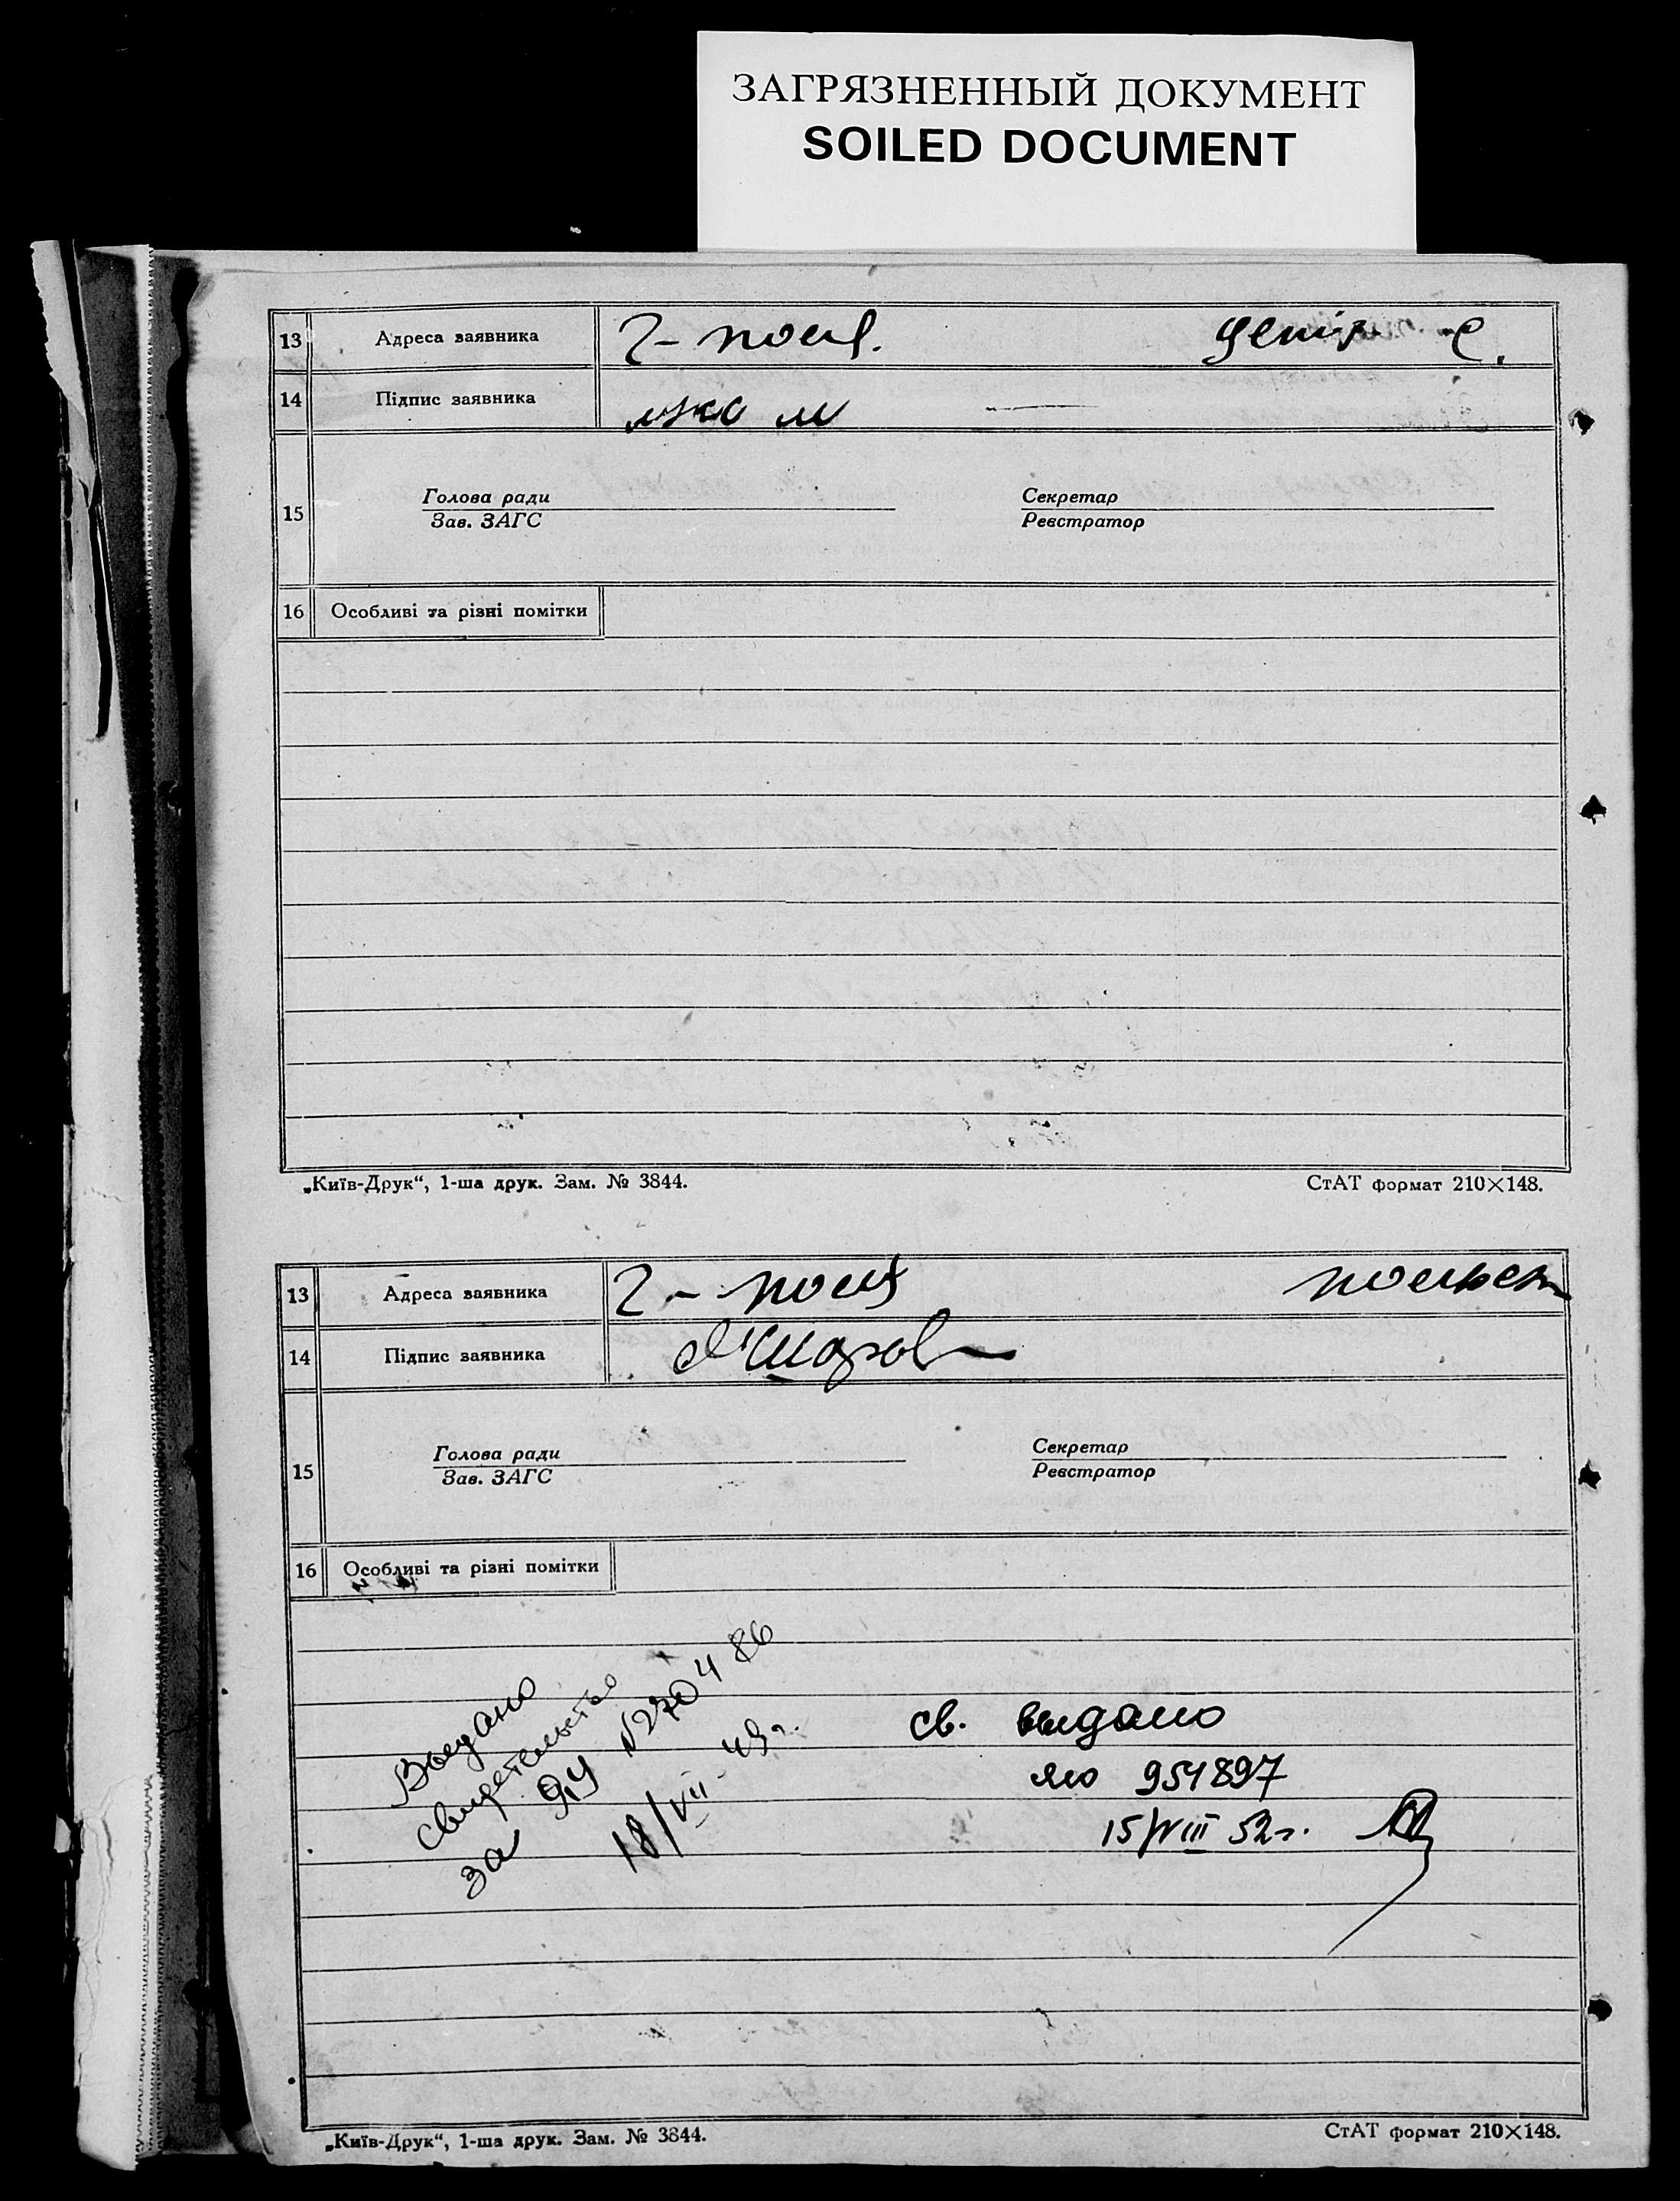 ЗАГРЯЗНЕННЫЙ ДОКУМЕНТ
SOILED DOCUMENT
13 Адреса заявника
14 Підпис заявника
15
Голова ради
Зав. ЗАГС
Секретар
Реєстратор
16 Особливі та різні помітки
„Київ-Друк“, 1-ша друк. Зам. № 3844.
СтАТ формат 210×148.
13 Адреса заявника
14 Підпис заявника
15
Голова ради
Зав. ЗАГС
Секретар
Реєстратор
16 Особливі та різні помітки
Выдано
свидетельство
за N270486
18/VII-49г.
св. выдано
951897
15/VIII 52г.
„Київ-Друк“, 1-ша друк. Зам. № 3844.
СтАТ формат 210×148.